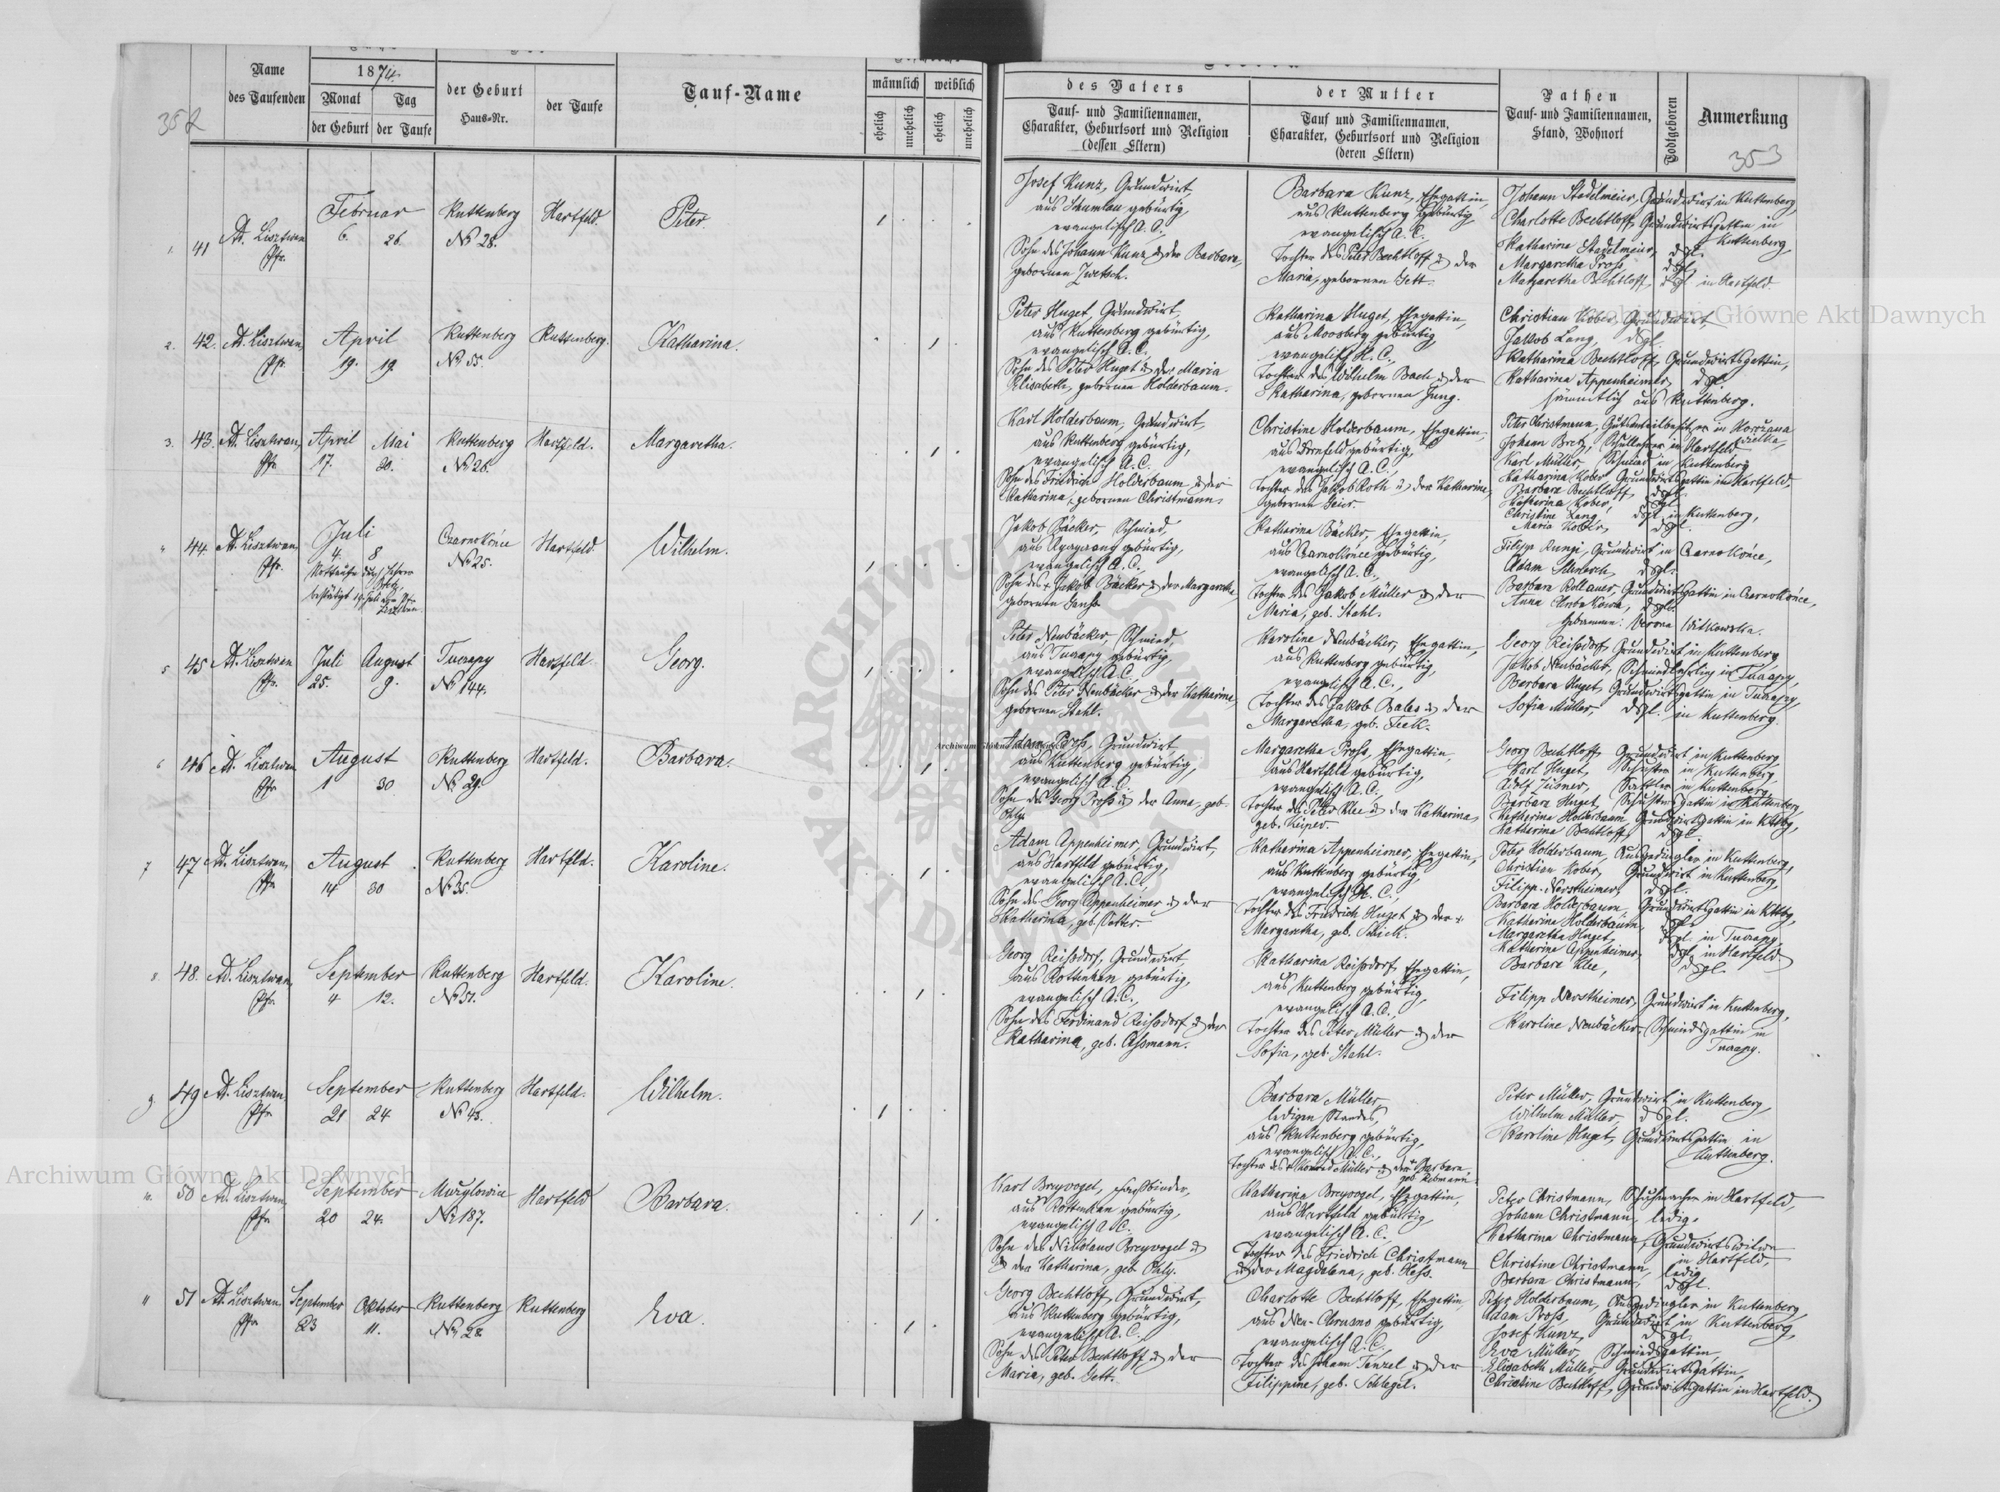 352
Name
des Taufenden
1874.
Monat
Tag
der Geburt
der Taufe
der Geburt
Haus-Nr.
der Taufe
Tauf-Name
männlich
weiblich
ehelich
unehelich
ehelich
unehelich
des Vaters
Tauf- und Familiennamen,
Charakter, Geburtsort und Religion
(dessen Eltern)
der Mutter
Tauf und Familiennamen,
Charakter, Geburtsort und Religion
(deren Eltern)
Pathen
Tauf- und Familiennamen,
Stand, Wohnort
Todtgeboren
Anmerkung
353
1. 41 Ad. Lisztwan
Pfr.
Februar
6. 26.
Kuttenberg
No 28.
Hartfeld.
Peter.
Josef Kunz, Grundwirt
gebürtig
evangelisch A. C.
Sohn des Johann Kunz & der Barbara,
gebornen
Barbara Kunz, Ehegattin,
aus Kuttenberg gebürtig
evangelisch A. C.
Tochter des Peter Bechtloff & der
Maria, gebornen Jett.
Johann Stadelmeier, Grundwirt in Kuttenberg,
Charlotte Bechtloff, Grundwirtsgattin in
Kuttenberg,
Katharina Stadelmeier, dsgl.
Margaretha Pross, dsgl.
Margaretha Bechtloff, dsgl. in Hartfeld.
2. 42. Ad. Lisztwan,
Pfr.
April
19. 19.
Kuttenberg
No 55.
Kuttenberg.
Katharina.
Peter Huget, Grundwirt,
aus Kuttenberg gebürtig,
evangelisch A. C.
Sohn des Peter Huget & der Maria
Elisabetha, gebornen Holderbaum.
Katharina Huget, Ehegattin,
aus Moosberg gebürtig,
evangelisch H. C.,
Tochter des Wilhelm Bach & der
Katharina, gebornen Jung.
Christian Kober, Grundwirt,
Jakob Lang, dsgl.
Katharina Bechtloff, Grundwirtsgattin,
Katharina Appenheimer, dsgl.
sämmtlich aus Kuttenberg.
3. 43. Ad. Lisztwan,
Pfr.
April Mai
17. 30.
Kuttenberg
No 26.
Hartfeld.
Margaretha.
Karl Holderbaum, Grundwirt,
aus Kuttenberg gebürtig,
evangelisch A. C.
Sohn des Friedrich Holderbaum & der
Katharina, gebornen Christmann.
Christine Holderbaum, Ehegattin,
aus Dornfeld gebürtig,
evangelisch A. C.,
Tochter des Jakob Roth & der Katharina,
gebornen
Peter Christmann,
Johann Bretz, Schullehrer in Hartfeld
Karl Müller, Schmied in Kuttenberg
Katharina Kober, Grundwirtsgattin in Hartfeld,
Barbara Bechtloff, dsgl.
Katharina Kober, dsgl.
Christine Lang, dsgl. in Kuttenberg,
Maria Kober, dsgl.
" 44. Ad. Lisztwan,
Pfr.
Juli
4. 8
Czarnokońce
No 25.
Hartfeld.
Wilhelm.
Jakob Bäcker, Schmied
gebürtig,
evangelisch A. C.,
Sohn des + Jakob Bäcker & der Margaretha,
gebornen
Katharina Bäcker, Ehegattin,
aus Czarnokońce gebürtig,
evangelisch A. C.,
Tochter des Jakob Müller & der
Maria, geb. Stahl.
Filipp Rungi, Grundwirt in Czarnokońce,
Adam dsgl.
Barbara Rollauer, Grundwirtsgattin in Czarnokońce,
Anna dsgl.
Witkowska.
5 45 Ad. Lisztwan
Pfr.
Juli August
25. 9.
Tuczapy
No 144.
Hartfeld.
Georg.
Peter Neubäcker, Schmied,
aus Tuczapy gebürtig,
evangelisch A. C.
Sohn des Peter Neubäcker & der Katharina,
gebornen Stahl.
Karoline Neubäcker, Ehegattin,
aus Kuttenberg gebürtig,
evangelisch A. C.,
Tochter des Jakob Bales & der
Margaretha, geb.
Georg Reissdorf, Grundwirt in Kuttenberg
Jakob Neubäcker, Schmiedlehrling in Tuczapy,
Barbara Huget, Grundwirtsgattin in Tuczapy,
Sofia Müller, dsgl. in Kuttenberg.
6 46 Ad. Lisztwan
Pfr.
August
1 30.
Kuttenberg
No 29.
Hartfeld.
Barbara.
Adam Pross, Grundwirt,
aus Kuttenberg gebürtig,
evangelisch A. C.
Sohn des Georg Pross & der Anna, geb.
Ohly.
Margaretha Pross, Ehegattin,
aus Hartfeld gebürtig,
evangelisch A. C.,
Tochter des Peter Klee & der Katharina,
geb. Küper.
Georg Bechtloff, Grundwirt in Kuttenberg,
Karl Huget, Schuster in Kuttenberg,
Adolf Zusner, Sattler in Kuttenberg,
Barbara Huget, Schustersgattin in Kuttenberg,
Katharina Holderbaum, Grundwirtsgattin in Kttbg,
Katharina Bechtloff, dsgl.
7 47 Ad. Lisztwan
Pfr.
August
14 30
Kuttenberg
No 35.
Hartfeld.
Karoline.
Adam Appenheimer, Grundwirt,
aus Hartfeld gebürtig,
evangelisch A. C.,
Sohn des Georg Appenheimer & der
Katharina, geb.
Katharina Appenheimer, Ehegattin,
aus Kuttenberg gebürtig,
evangelisch H. C.,
Tochter des Friedrich Huget & der +
Margaretha, geb. Schick.
Peter Holderbaum, Ausgedingler in Kuttenberg,
Christian Kober, Grundwirt in Kuttenberg,
Filipp Nerstheimer, dsgl.
Barbara Holderbaum, Grundwirtsgattin in Kttbg,
Katharina Holderbaum, dsgl.
Margaretha Huget, dsgl. in Tuczapy
Katharina Appenheimer, dsgl. in Hartfeld,
Barbara Klee, dsgl.
8 48. Ad. Lisztwan,
Pfr.
September
4 12.
Kuttenberg
No 51.
Hartfeld.
Karoline.
Georg Reissdorf, Grundwirt
aus Rottenhan gebürtig,
evangelisch A. C.,
Sohn des Ferdinand Reissdorf & der
Katharina, geb. Assmann.
Katharina Reissdorf, Ehegattin,
aus Kuttenberg gebürtig,
evangelisch A. C.,
Tochter des Peter Müller & der
Sofia, geb. Stahl.
Filipp Nerstheimer, Grundwirt in Kuttenberg,
Karoline Neubäcker, Schmiedsgattin in
Tuczapy.
9 49 Ad. Lisztwan,
Pfr.
September
21 24.
Kuttenberg
No 43.
Hartfeld.
Wilhelm.
Barbara Müller
ledigen Standes,
aus Kuttenberg gebürtig,
evangelisch A. C.,
Tochter des + Konrad Müller & der + Barbara,
geb. Rebmann.
Peter Müller, Grundwirt in Kuttenberg,
Wilhelm Müller, dsgl.
Karoline Huget, Grundwirtsgattin in
Kuttenberg.
10. 50 Ad. Lisztwan,
Pfr.
September
20 24.
Mużyłowice
No 187.
Hartfeld
Barbara.
Karl Breyvogel, Fassbinder,
aus Rottenhan gebürtig,
evangelisch A. C.
Sohn des Nikolaus Breyvogel &
der Katharina, geb. Ohly.
Katharina Breyvogel, Ehegattin,
aus Hartfeld gebürtig,
evangelisch A. C.,
Tochter des Friedrich Christmann
& der Magdalena, geb. Hess.
Peter Christmann, Schuhmacher in Hartfeld,
Johann Christmann, ledig,
Katharina Christmann, Grundwirtswitwe
in Hartfeld,
Christine Christmann, ledig
Barbara Christmann, dsgl.
11 51 Ad. Lisztwan,
Pfr.
September Oktober
23 11.
Kuttenberg
No 28
Kuttenberg
Eva.
Georg Bechtloff, Grundwirt,
aus Kuttenberg gebürtig,
evangelisch A. C.,
Sohn des Peter Bechtloff & der
Maria, geb. Jett.
Charlotte Bechtloff, Ehegattin,
aus Neu-Chrusno gebürtig,
evangelisch A. C.
Tochter des Johann Tenzel & der
Filippine, geb. Schlegel.
Peter Holderbaum, Ausgedingler in Kuttenberg,
Adam Pross, Grundwirt in Kuttenberg,
Josef Kunz, dsgl.
Eva Müller, Schmiedsgattin,
Elisabeth Müller, Grundwirtsgattin,
Christine Bechtloff, Grundwirtsgattin in Hartfeld.
Archiwum Główne Akt Dawnych
Archiwum Główne Akt Dawnych
ARCHIWUM GŁÓWNE AKT DAWNYCH